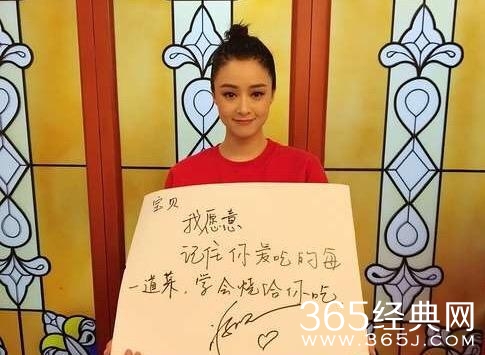 宝贝
我愿意
记住你爱吃的每
一道菜，学会烧给你吃
♡
365经典网
www.365J.com